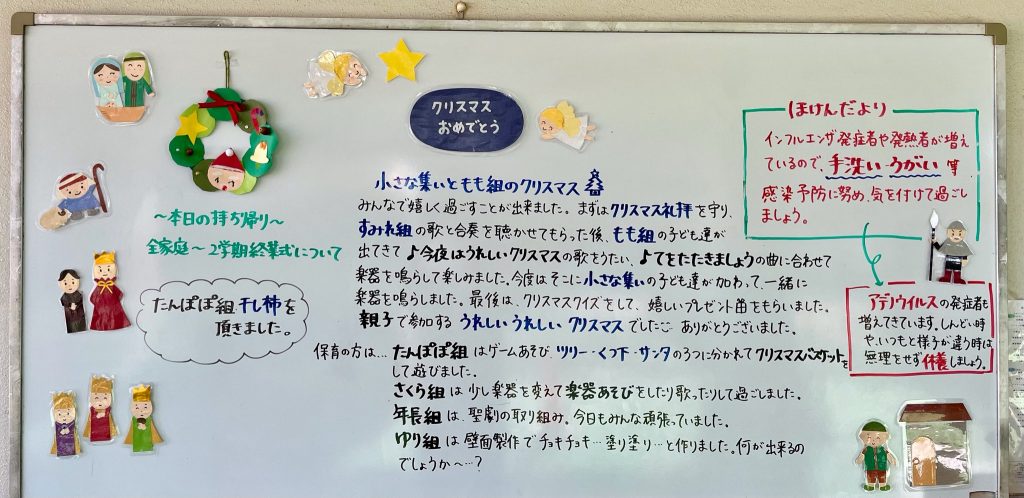 クリスマス
おめでとう
ほけんだより
インフルエンザ発症者や発熱者が増え
ているので、手洗い・うがい等
感染予防に努め、気を付けて過ごし
ましょう。
アデノウイルスの発症者も
増えてきています。しんどい時
や、いつもと様子が違う時は
無理をせず休養しましょう。
〜本日の持ち帰り〜
全家庭〜2学期終業式について
たんぽぽ組干し柿を
頂きました。
小さな集いともも組のクリスマス
みんなで嬉しく過ごすことが出来ました。まずはクリスマス礼拝を守り、
すみれ組の歌と合奏を聴かせてもらった後、もも組の子ども達が
出てきて♪今夜はうれしいクリスマスの歌をうたい、♪てをたたきましょうの曲に合わせて
楽器を鳴らして楽しみました。今度はそこに小さな集いの子ども達が加わって、一緒に
楽器を鳴らしました。最後は、クリスマスクイズをして、嬉しいプレゼント苗をもらいました。
親子で参加する うれしい うれしい クリスマスでした ありがとうございました。
保育の方は… たんぽぽ組 はゲームあそび、ツリー・くつ下・サンタの3つに分かれてクリスマスバスケットを
して遊びました。
さくら組 は 少し楽器を変えて楽器あそびをしたり歌ったりして過ごしました。
年長組 は、聖劇の取り組み。今日もみんな頑張っていました。
ゆり組 は 壁面製作でチョキチョキ…塗り塗り…と作りました。何が出来るの
でしょうか〜…?